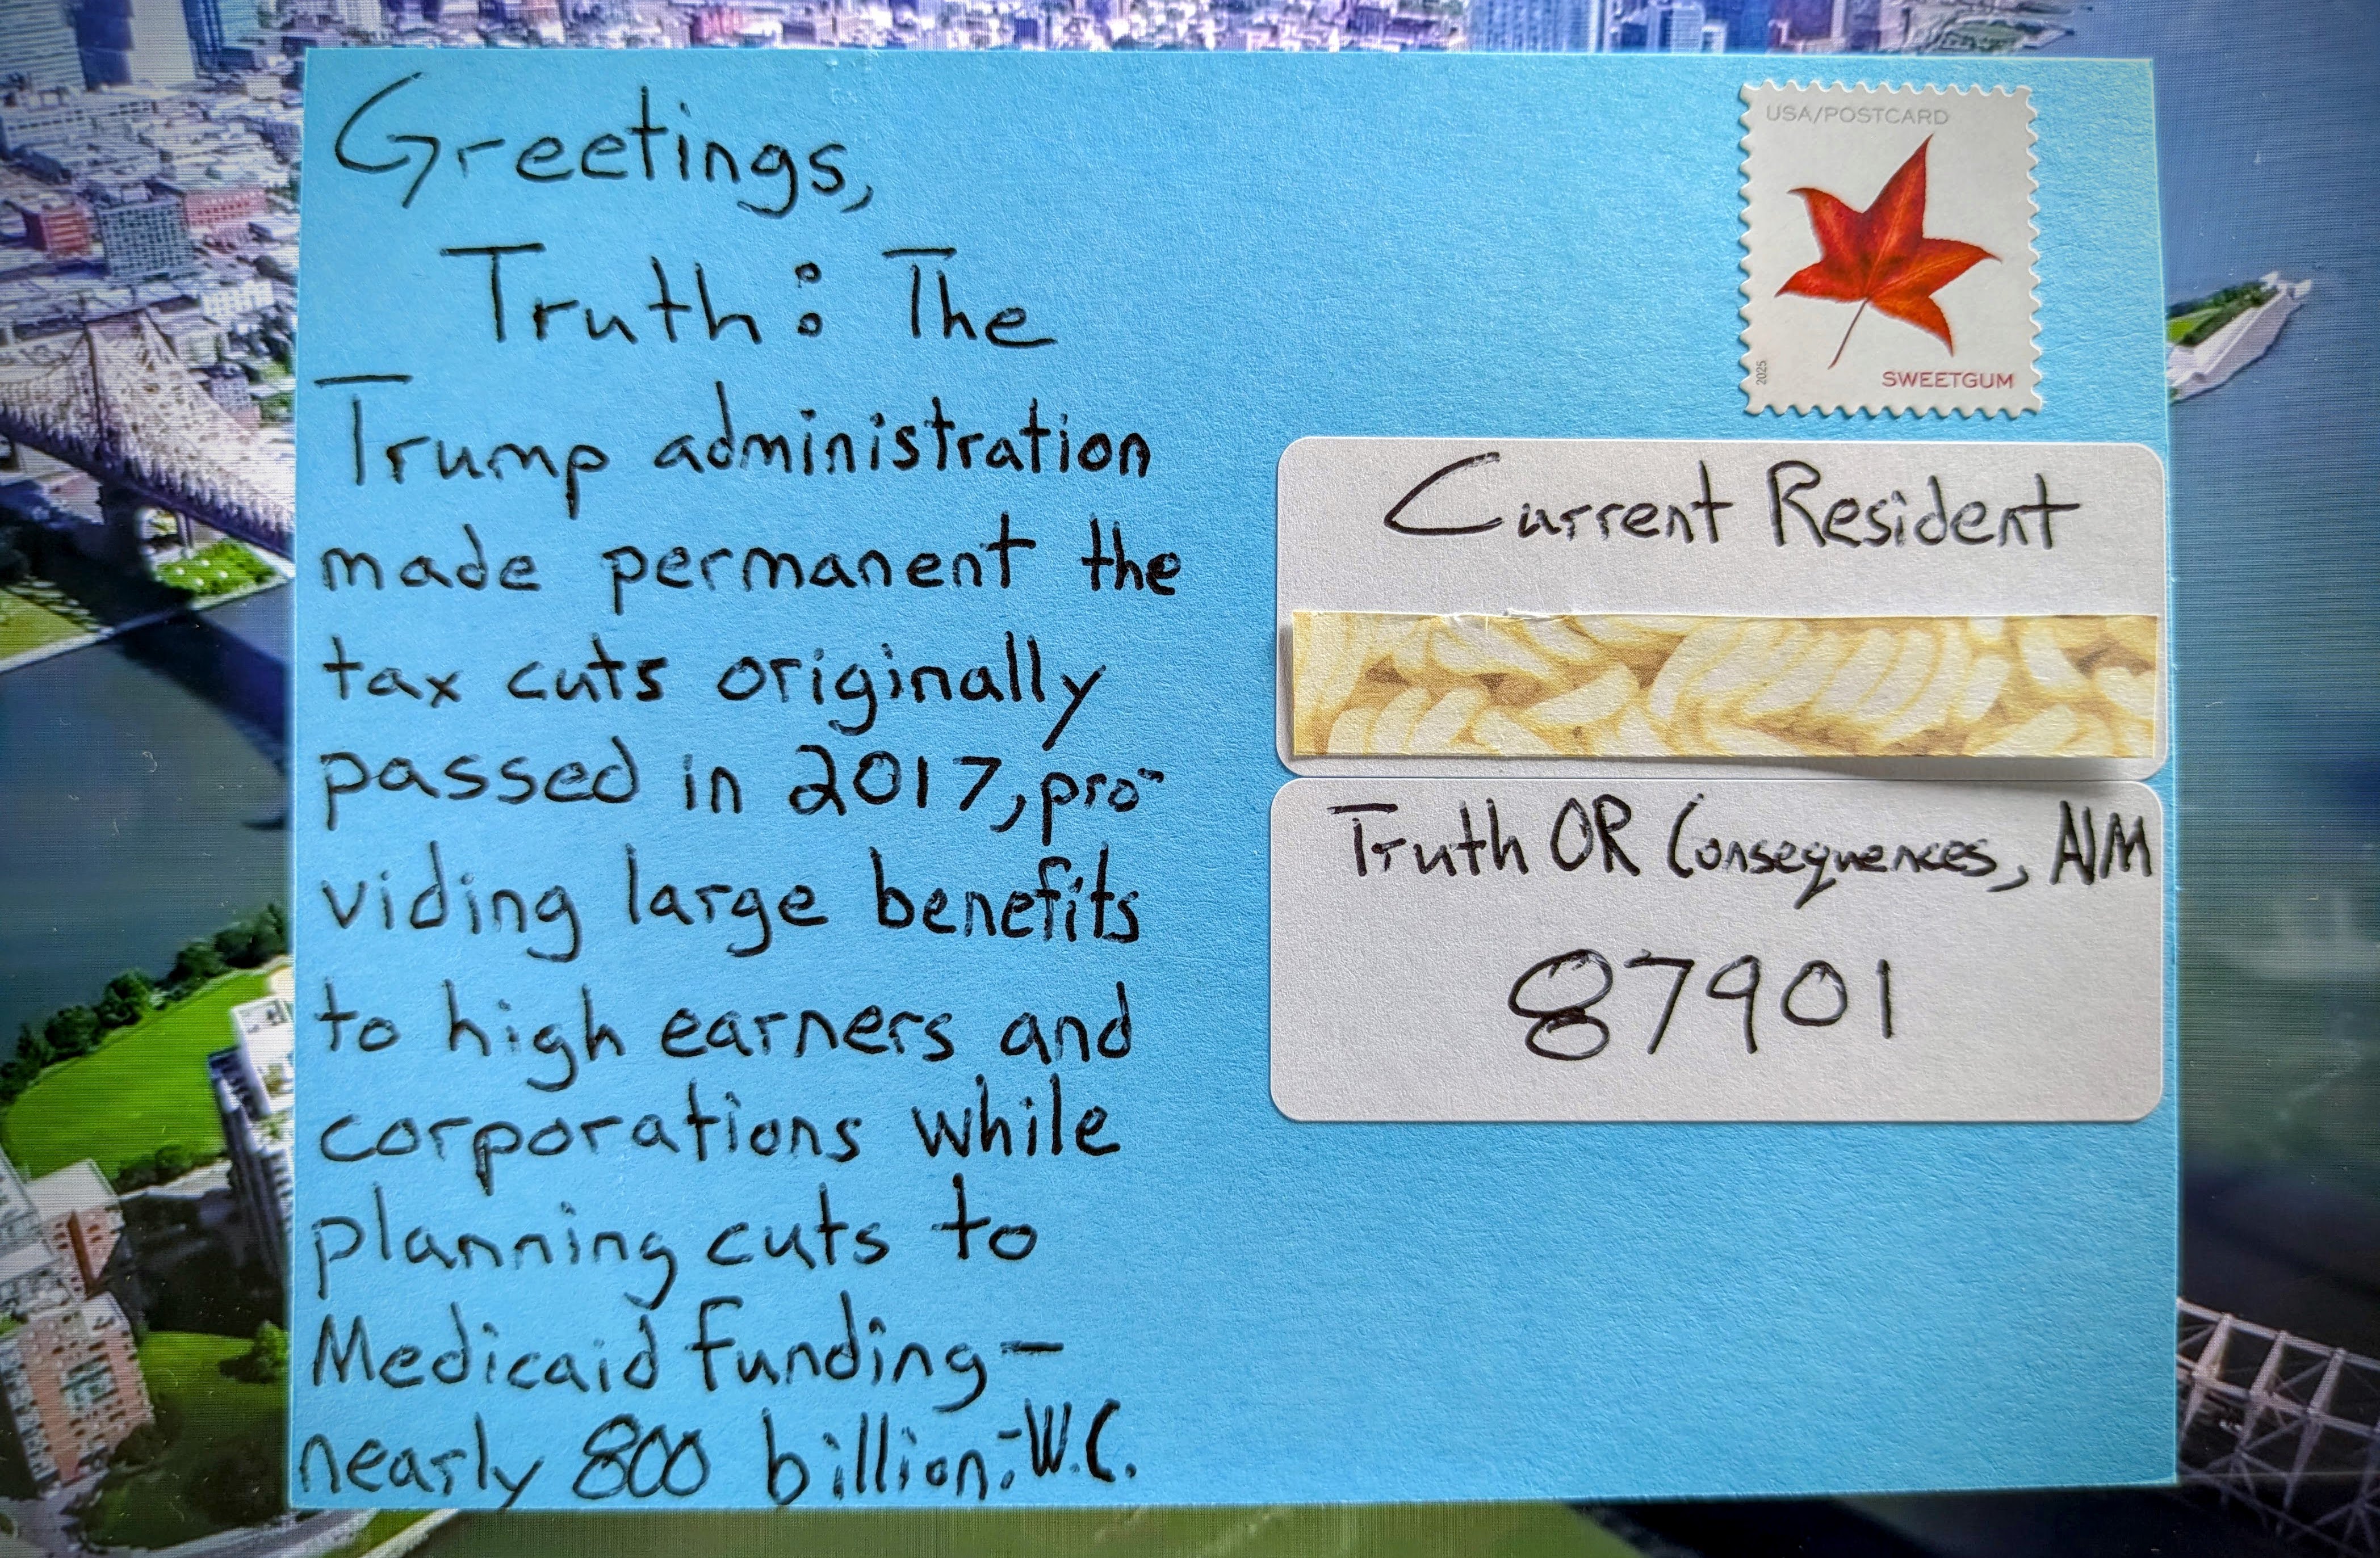 Greetings,
Truth: The
Trump administration
made permanent the
tax cuts originally
passed in 2017, pro-
viding large benefits
to high earners and
corporations while
planning cuts to
Medicaid funding—
nearly 800 billion.-W.C.
USA/POSTCARD
2025
SWEETGUM
Current Resident
Truth OR Consequences, NM
87901